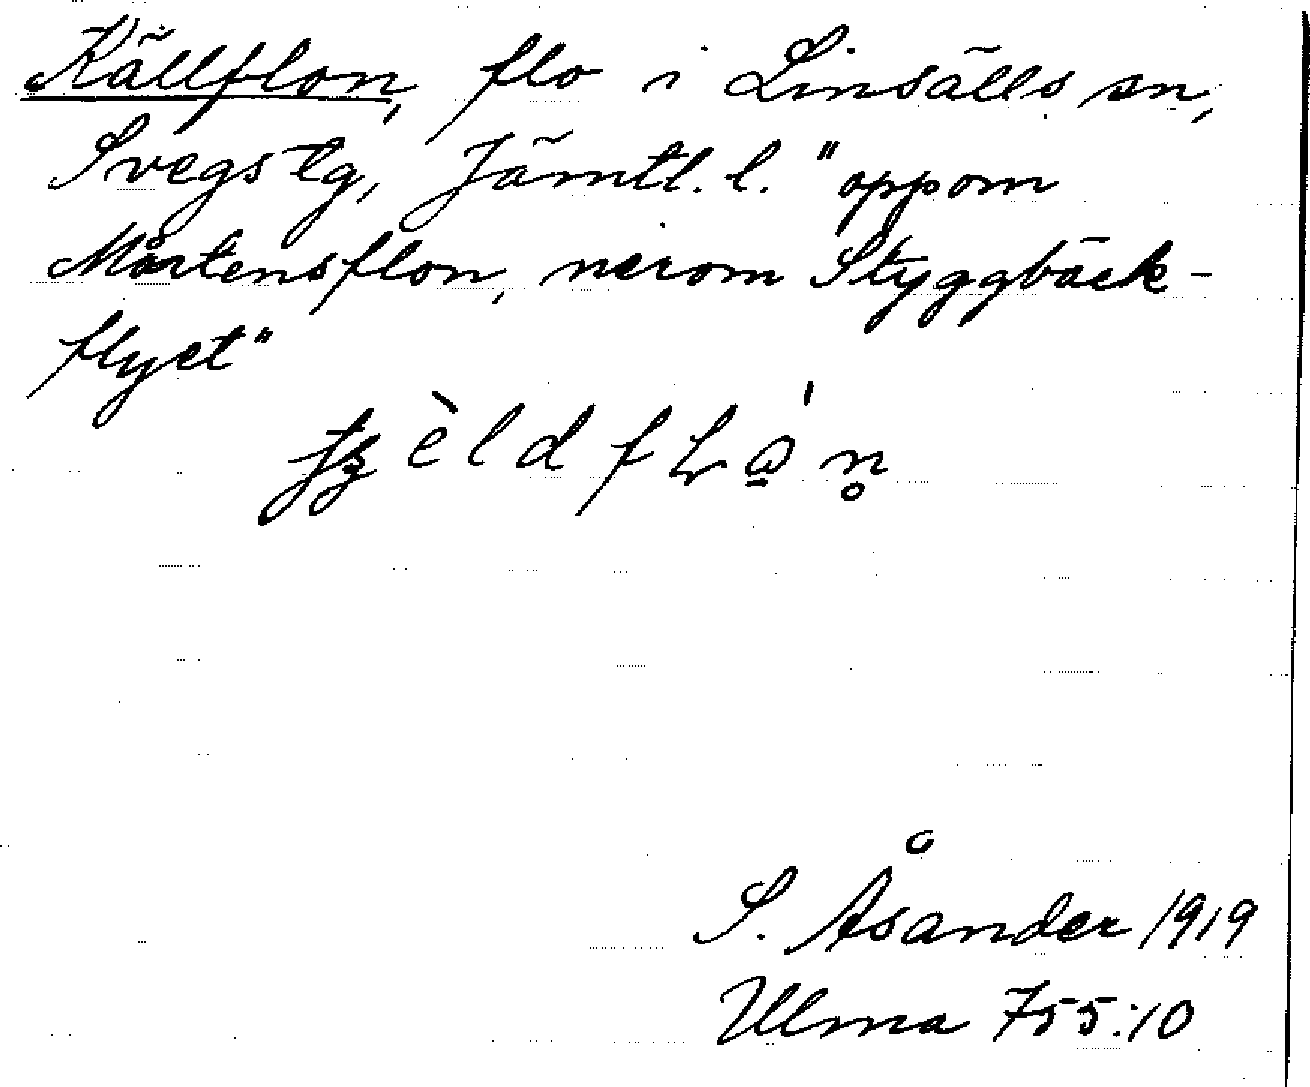 Källflon, flo i Linsälls sn,
Svegs tg, Jämtl. l. "oppom
Mårtensflon, nerom Styggbäck-
flyet"
S. Åsander 1919
Ulma 755:10